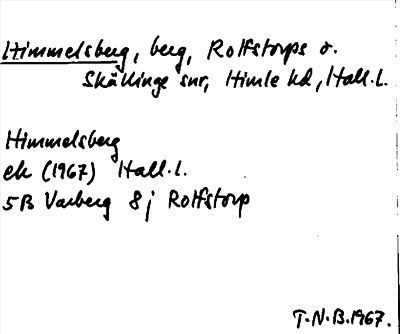 Himmelsberg, berg, Rolfstorps o.
Skällinge snr, Himle hd, Hall.l.
Himmelsberg
ek (1967) Hall.l.
5B Varberg 8j Rolfstorp
T.N.B.1967.